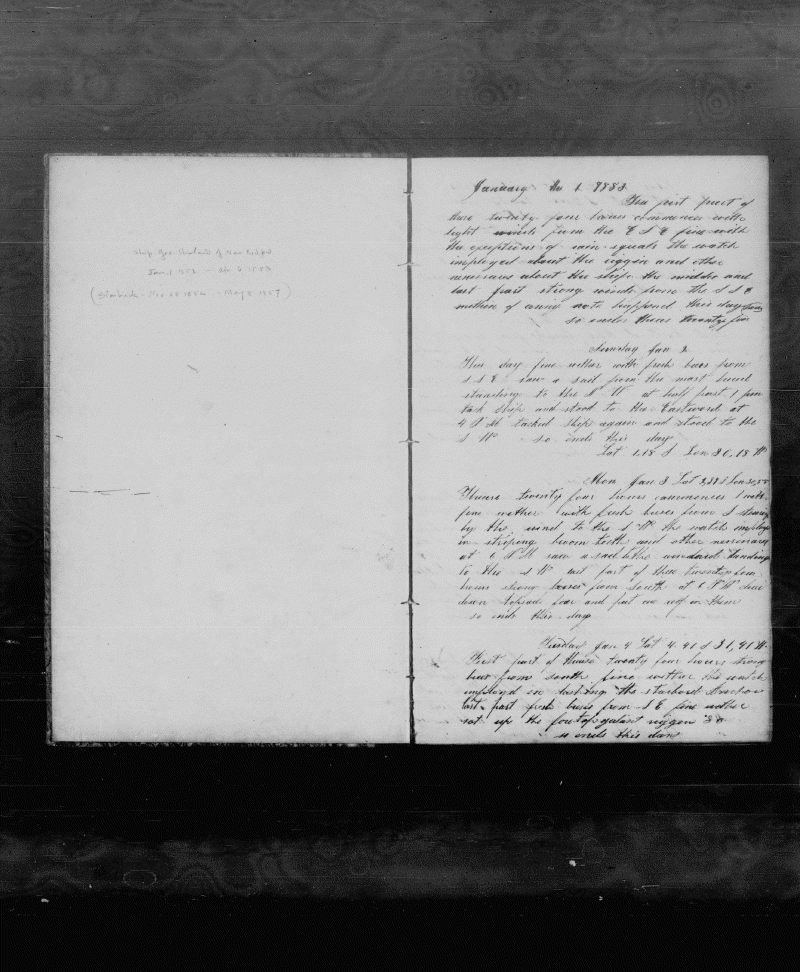 Ship Geo. Howland of New Bedford
Jan 1 1853
(Starbuck - Nov 1852 - May 1857)
January the 1 1853
The first part of
these twenty four hours commences with
light winds from the E S E fine with
the exceptions of rain squals the watch
imployed about the riggin and other
nessecaries about the ship the middle and
last part strong winds from the S S E
nothing of any note happend this day
so ends these twenty four
Sunday Jan 2
This day fine wether with fresh breses from
S S E saw a sail from the mast head
standing to the N W at half past 1 pm
tack ship and stood to the Eastward at
4 P M tacked ship again and stood to the
S W so ends this day
Lat 1,18 S Lon 30,18 W
Mon Jan 3 Lat S Lon
These twenty four hours commences with
fine wether with fresh breses from S
by the wind to the S W the watch imployd
in striping broom teeth and other nessecarys
at 6 P M saw a sail to the windard standing
to the S W last part of these twenty four
hours strong breses from south at 6 P M
down topsail and put one reef in them
so ends this day
Tuesday Jan 4 Lat 4.41 S 31,41 W
First part of these twenty four hours strong
from south fine wether the watch
imployd in the starbord Anchor
last part fresh breses from S E fine wether
set up the fortopgalant riggen
so ends this day